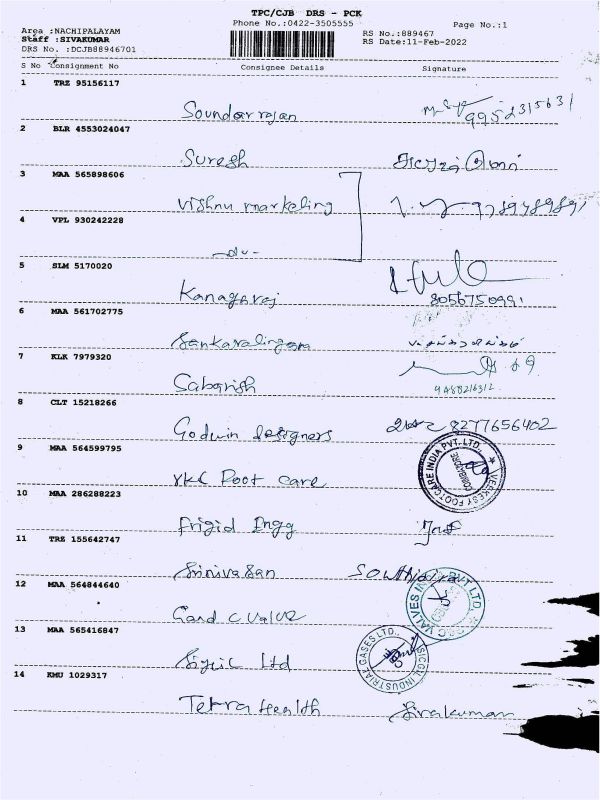 TPC/CJB DRS - PCK
Phone No.:0422-3505555
Page No.:1
Area :NACHIPALAYAM
Staff :SIVAKUMAR
DRS No. :DCJB88946701
RS No.:889467
RS Date:11-Feb-2022
S No Consignment No Consignee Details Signature
1 TRZ 95156117
Soundarrajan 9952315631
2 BLR 4553024047
Suresh
3 MAA 565898606
Vishnu marketing
4 VPL 930242228
-do-
5 SLM 5170020
Kanagaraj 8056750991
6 MAA 561702775
Sankaralingam
7 KLK 7979320
Sabarish 9488216312
8 CLT 15218266
Godwin designers 8277656402
9 MAA 564599795
VKC Foot care
VEEKESY FOOTCARE INDIA PVT. LTD. COIMBATORE
10 MAA 286288223
Frigid Engg
11 TRZ 155642747
Srinivasan
12 MAA 564844640
G and C Valve
VALVES PVT LTD.
13 MAA 565416847
Sicgil Ltd
SICGIL INDUSTRIAL GASES LTD.
14 KMU 1029317
Tetra Health Sivakumar